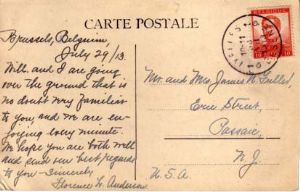 CARTE POSTALE
Brussels, Belguim
July 29/13.
Will and I are going
over the ground that is
no doubt very familiar
to you and we are en-
joying every minute.
We hope you are both well
and send our best regards
to you - Sincerely
Florence L. Anderson
BELGIQUE
Mr. and Mrs. James H.
Erie Street,
Passaic,
N.J.
U.S.A.